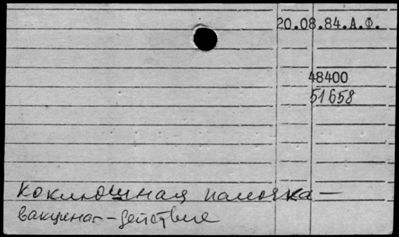 20.08.84.А.Ф.
48400
51658
коклюшная палочка –
вакцина – действие